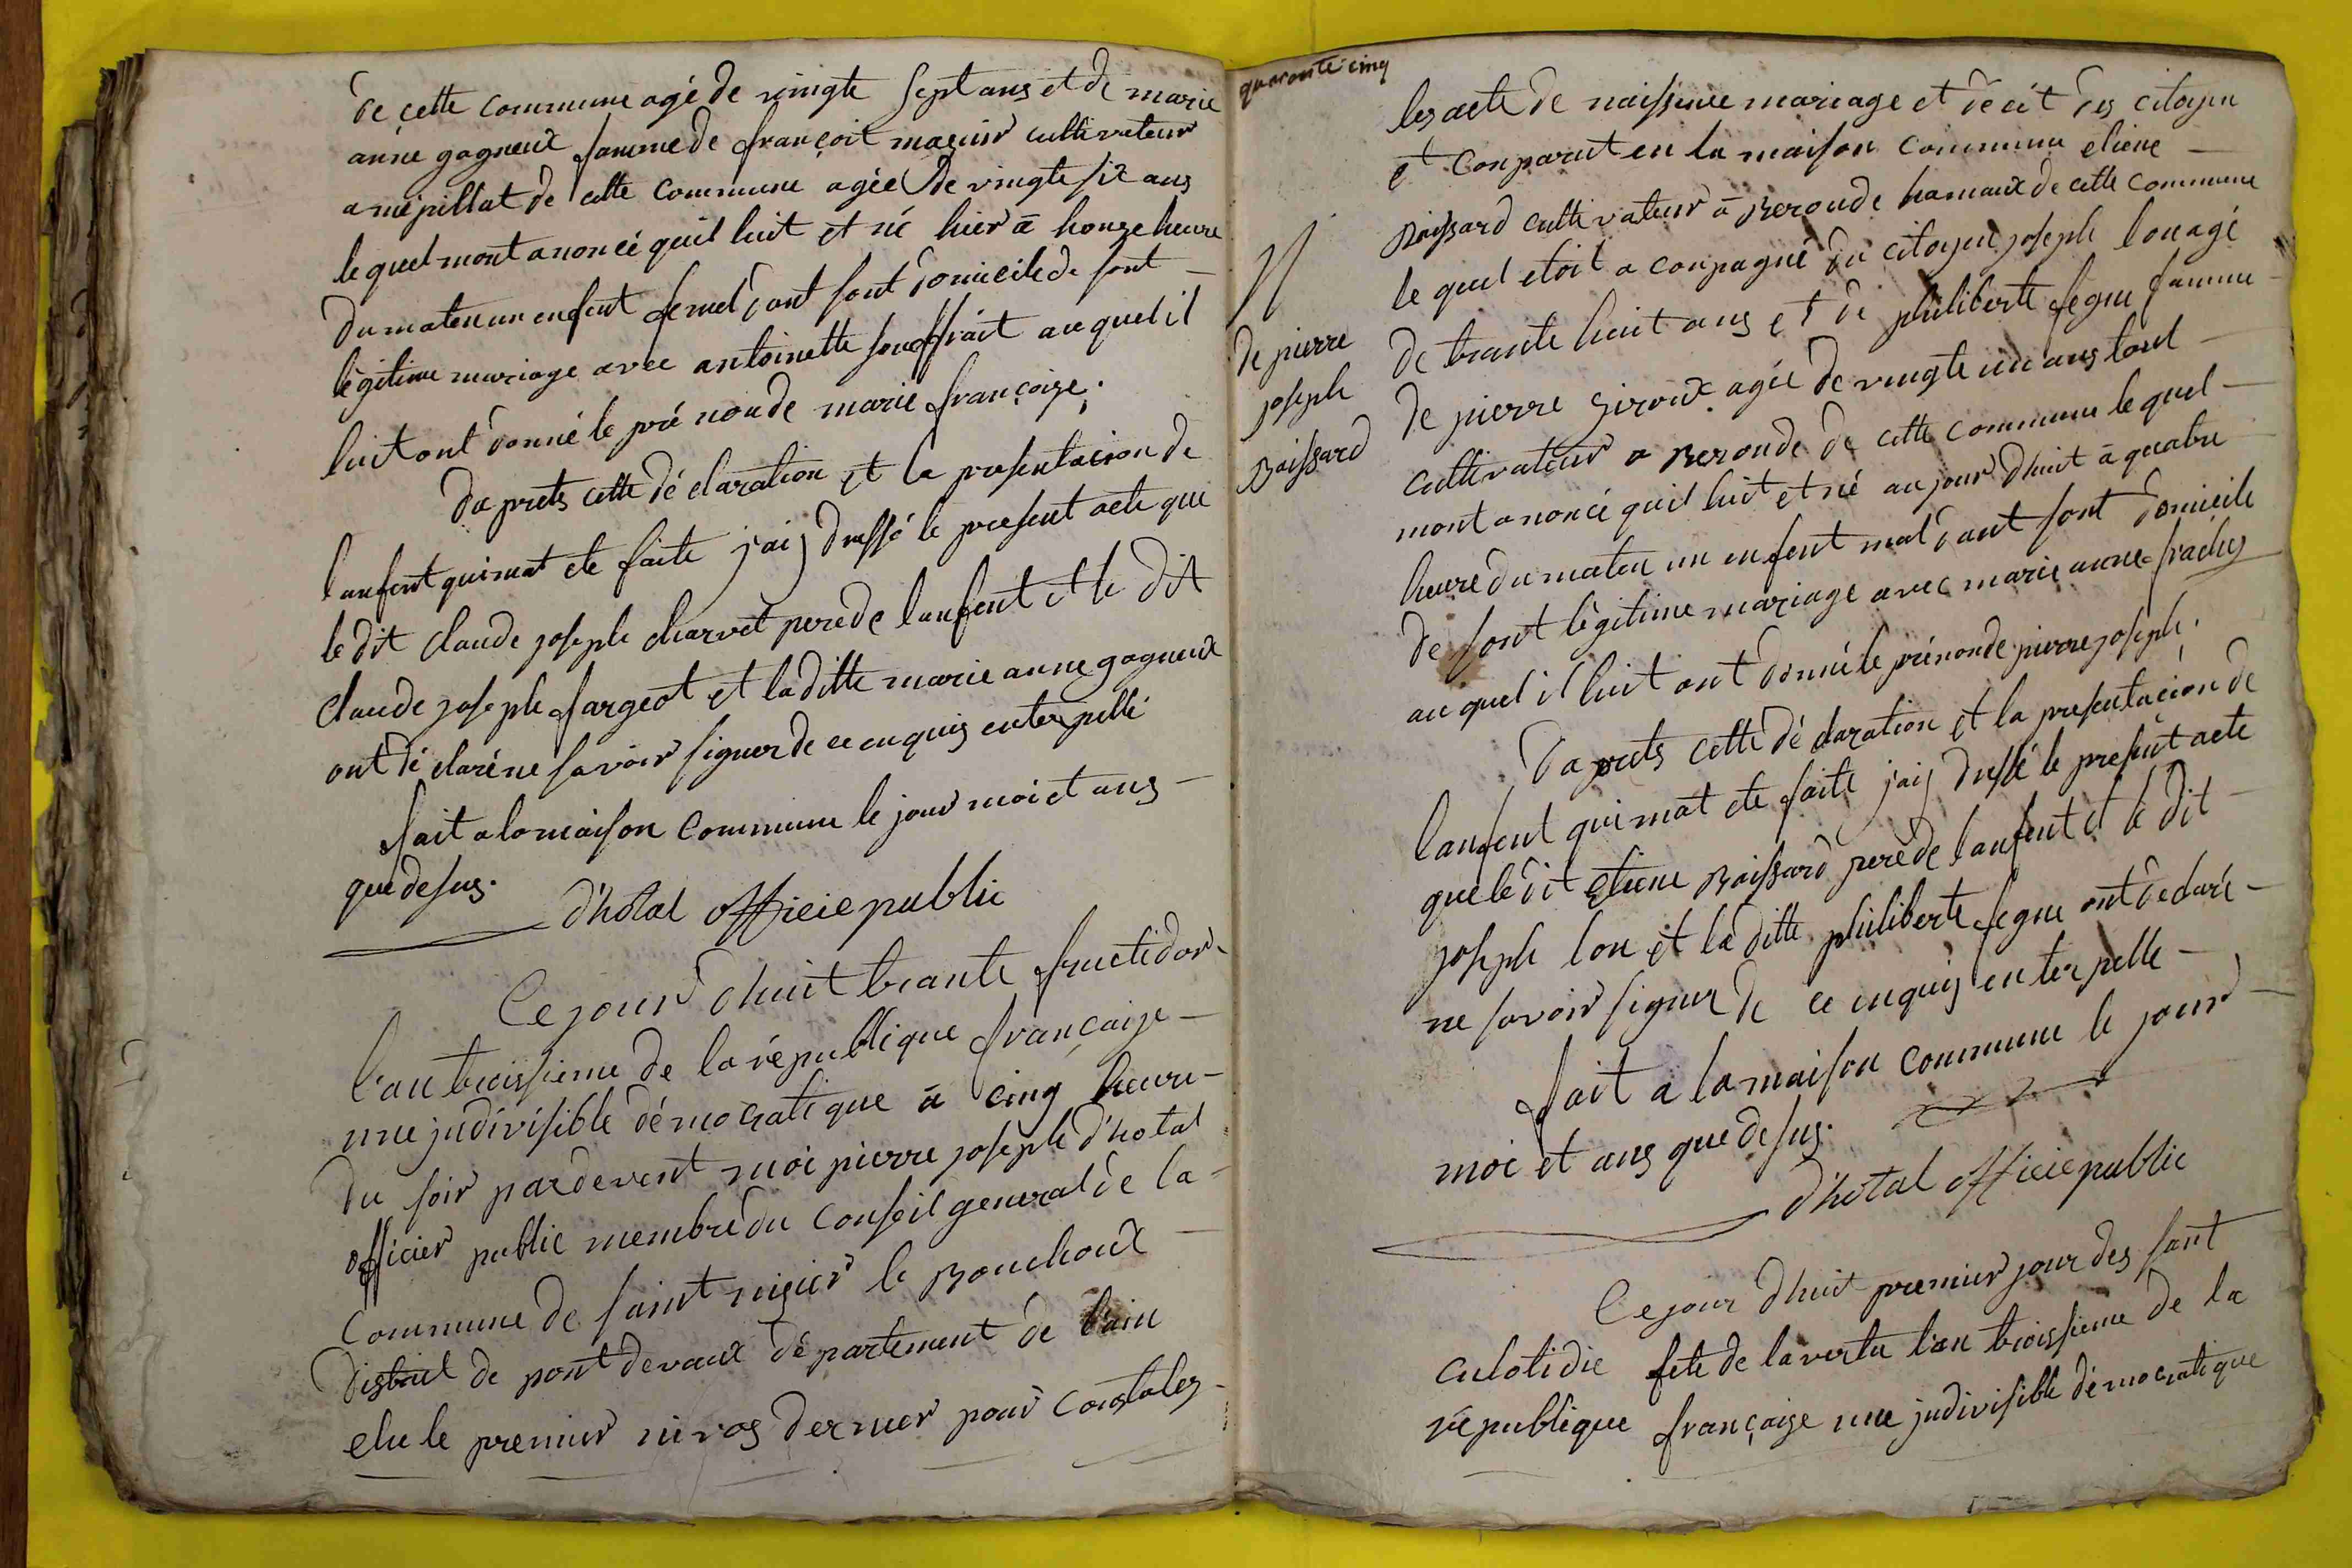 de cette commune agé de vingte sept ans et de marie
anne gagneux famme de françoit maguin cultivateur
a mépillat de cette commune agée de vingte six ans
le quel mont anoncé quil luit et né hier à honze heure
du maten un enfent femel dont sont domicile de sont
légitime mariage avec antoinette souffrait au quel il
luit ont donné le pré non de marie françoise.
da prets cette dé claration et la presentacion de
lanfent qui mat ete faite jaij dressé le present acte que
le dit claude joseph charvet pere de lanfent et le dit
claude joseph fargeot et la ditte marie anne gagneux
ont dé claré ne savoir signer de ce enquis enterpellé
fait a la maison commune le jour moi et ans
que desus.
d'hotal officie public
Ce jour d'huit trante fructidor
l'an troissieme de la république françoise
une judivisible démocratique à cinq heure
du soir pardevent moi pierre joseph d'hotal
officier public membre du conseil general de la
commune de saint nisier le Bouchoux
district de pont devaux dé partement de l'ain
elu le premier nivos dernier pour constates
quarante cinq
les acte de naissence mariage et décét des citoyen
et conparut en la maison commune etiene
Boissard cultivateur à Beroude hamaux de cette commune
le quel etoit a conpagné du citoyen joseph lon agé
de trante huit ans et de philiberte segue famme
de pierre giroux agée de vingte un ans tout
cultivateur a Beronde de cette commune le quel
mont anoncé quil luit et né au jour dhuit à quatre
heure du maten un enfent mal dont sont domicile
de sont légitime mariage avec marie anne frachy
au quel il luit ont donné le prénon de pierre joseph.
N
de pierre
joseph
Boissard
Da prets cette dé claration et la presentacion de
lanfent qui mat ete faite jaij dressé le present acte
que le dit etiene Boissard pere de lanfent et le dit
joseph lon et la ditte philiberte segue ont declaré
ne savoir signer de ce enquis enterpelle
fait a la maison commune le jour
moi et ans que desus.
d'hotal officie public
Ce jour d'huit premier jour des sant
culotidie fete de la vertu l'an troissieme de la
république françoise une judivisible démocratique